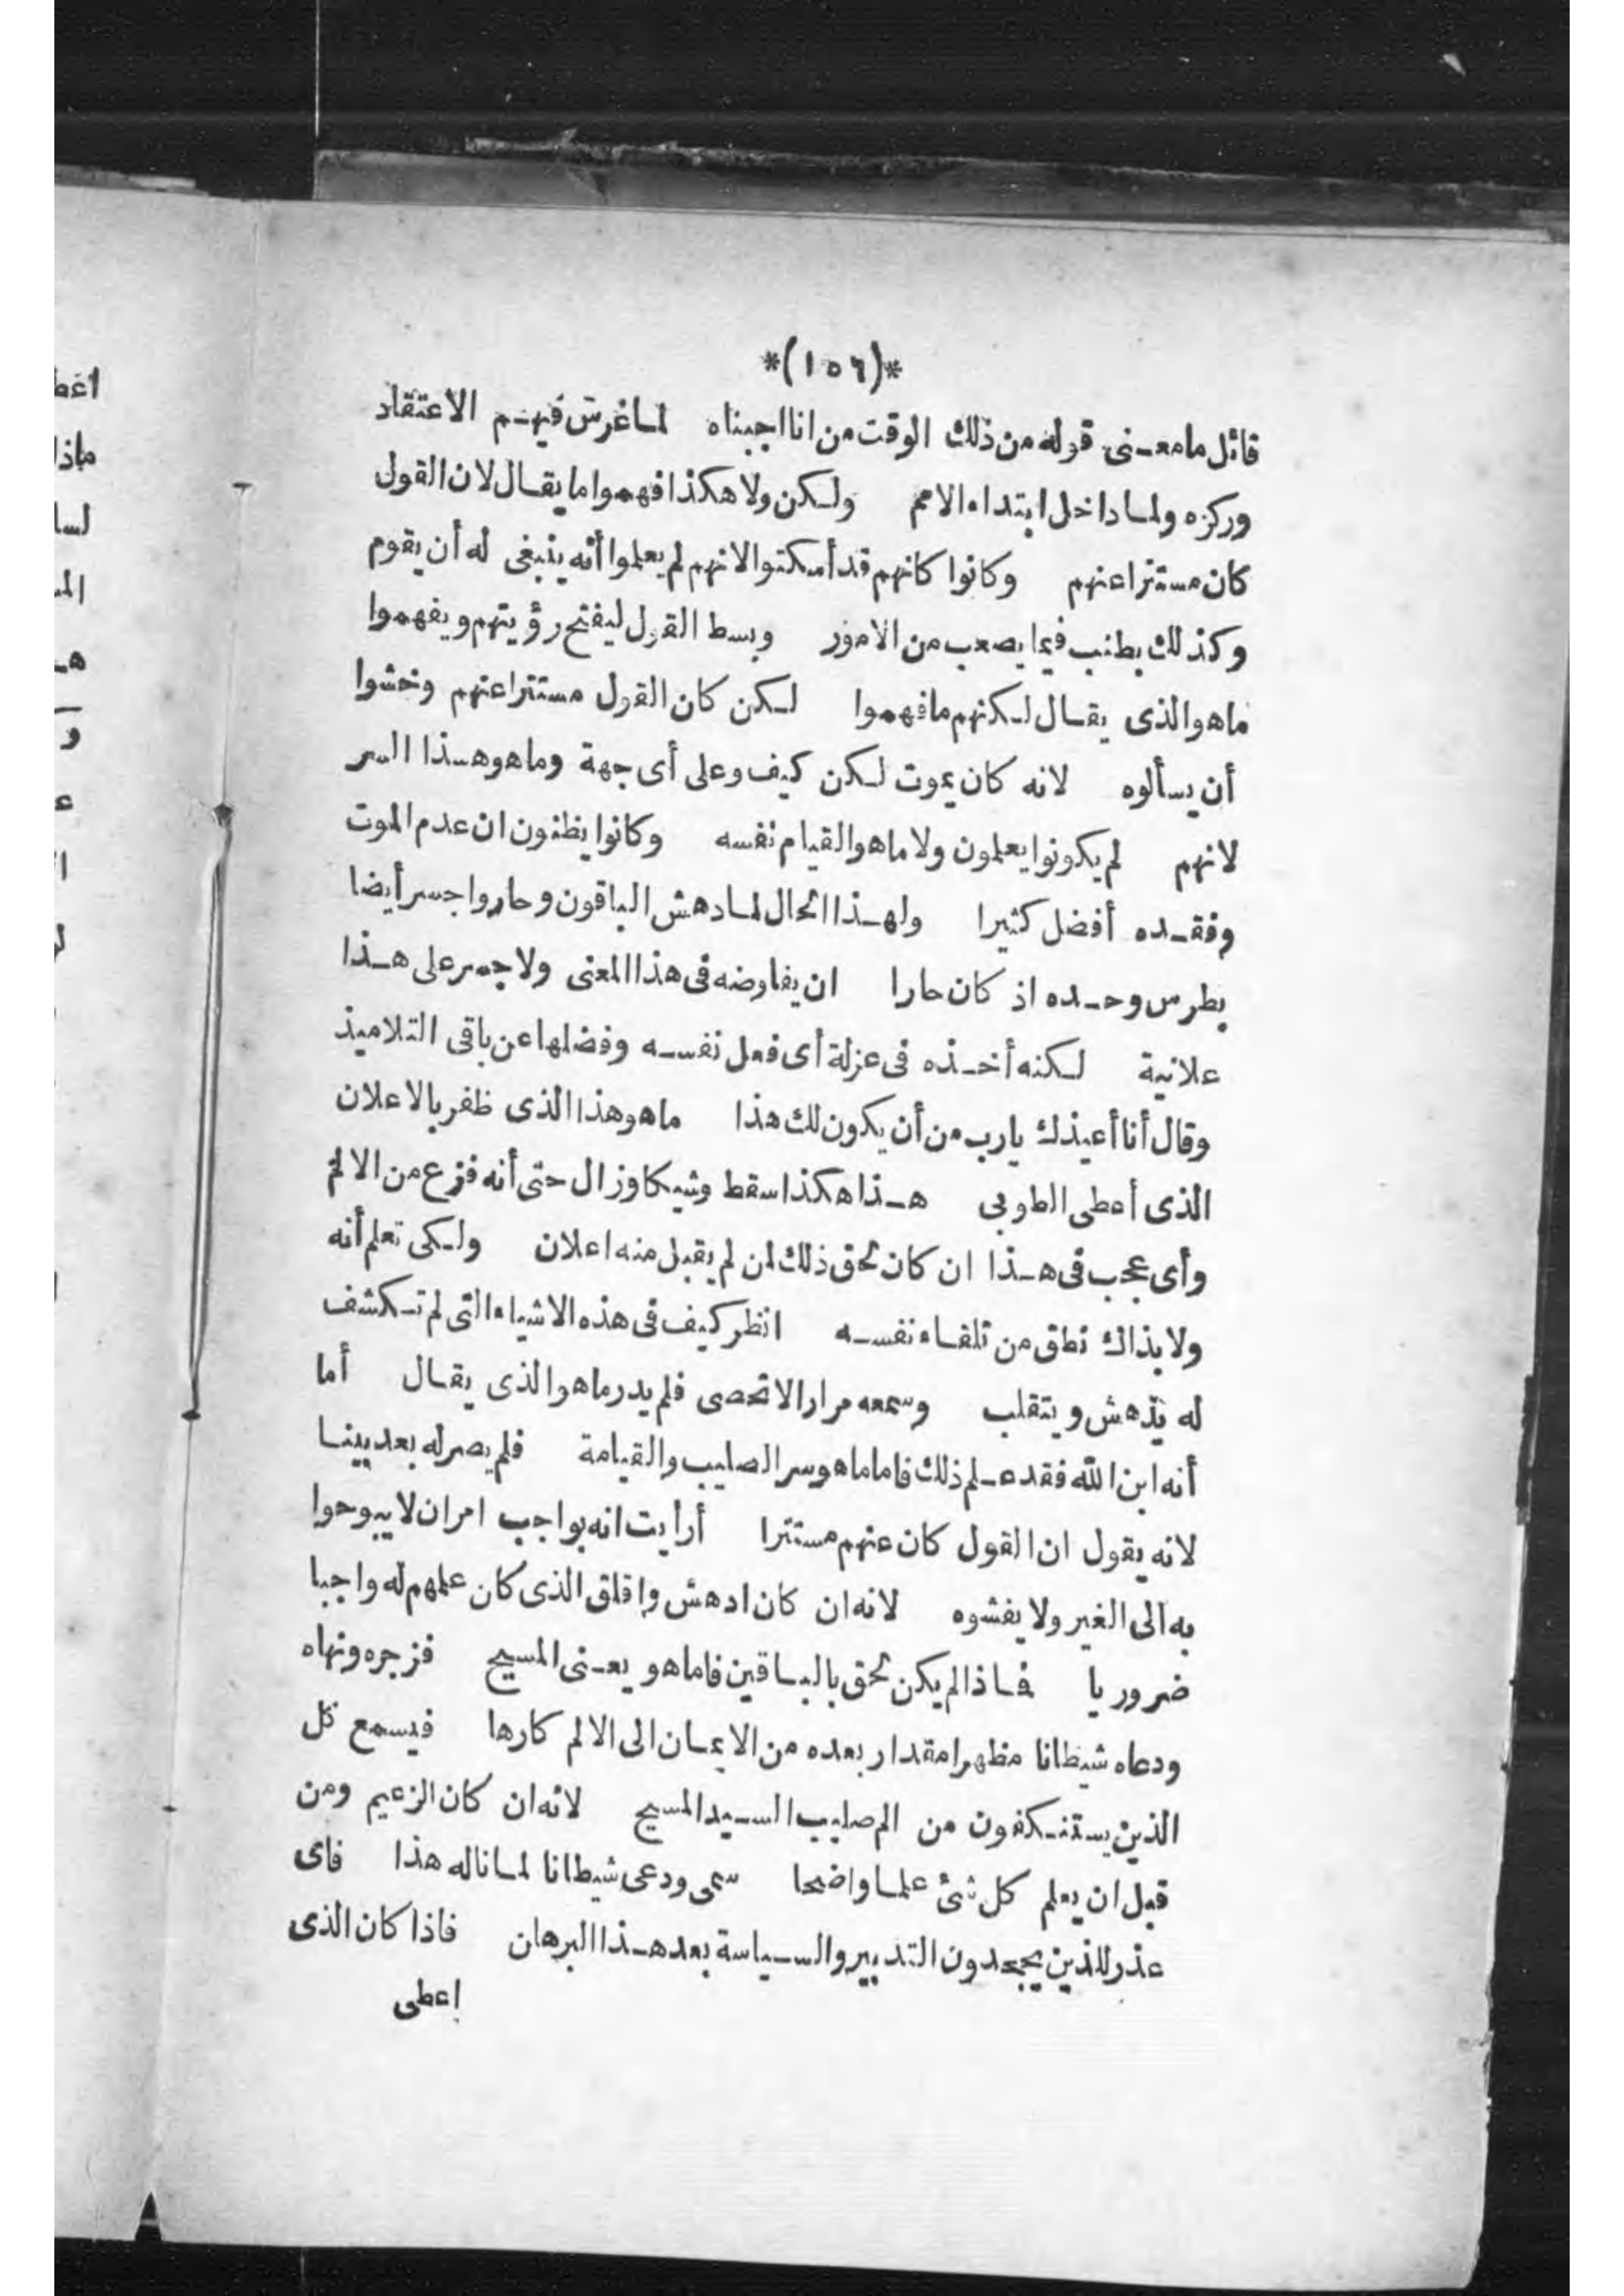 *(١٥٦)*
قائل ما معنى قوله من ذلك الوقت من انا اجبناه لما غرس فيهم الاعتقاد
وركزه ولما داخل ابتداء الامم ولكن ولا هكذا فهموا ما يقال لان القول
كان مستترا عنهم وكانوا كانهم قد أسكتوا لانهم لم يعلموا أنه ينبغى له أن يقوم
وكذلك يطنب فيما يصعب من الامور وبسط القول ليفتح رؤيتهم ويفهموا
ما هو الذى يقال لكنهم ما فهموا لكن كان القول مستترا عنهم وخشوا
أن يسألوه لانه كان يموت لكن كيف وعلى أى جهة وما هو هذا السر
لانهم لم يكونوا يعلمون ولا ما هو القيام نفسه وكانوا يظنون ان عدم الموت
وفقده أفضل كثيرا ولهذا الحال لما دهش الباقون وحاروا جسر أيضا
بطرس وحده اذ كان حارا ان يفاوضه فى هذا المعنى ولا جسر على هذا
علانية لكنه أخذه فى عزلة أى فصل نفسه وفضلها عن باقى التلاميذ
وقال أنا أعيذك يا رب من أن يكون لك هذا ما هو هذا الذى ظفر بالاعلان
الذى أعطى الطوبى هذا هكذا سقط وشيكا وزال حتى أنه فزع من الالم
وأى عجب فى هذا ان كان لحق ذلك لمن لم يقبل منه اعلان ولكى تعلم أنه
ولا بذاك نطق من تلقاء نفسه انظر كيف فى هذه الاشياء التى لم تكشف
له يدهش ويتقلب وسمعه مرارا لا تحصى فلم يدر ما هو الذى يقال أما
أنه ابن الله فقد علم ذلك فاما ما هو سر الصليب والقيامة فلم يصر له بعد بينا
لانه يقول ان القول كان عنهم مستترا أرأيت انه بواجب امر ان لا يبوحوا
به الى الغير ولا يفشوه لانه ان كان ادهش واقلق الذى كان علمهم له واجبا
ضروريا فاذا لم يكن لحق بالباقين فاما هو يعنى المسيح فزجره ونهاه
ودعاه شيطانا مظهرا مقدار بعده من الاتيان الى الالم كارها فيسمع كل
الذين يستنكفون من الم صليب السيد المسيح لانه ان كان الزعيم ومن
قبل ان يعلم كل شئ علما واضحا سمى ودعى شيطانا لما ناله هذا فاى
عذر للذين يجحدون التدبير والسياسة بعد هذا البرهان فاذا كان الذى
اعطى
اغط
ماذا
لسا